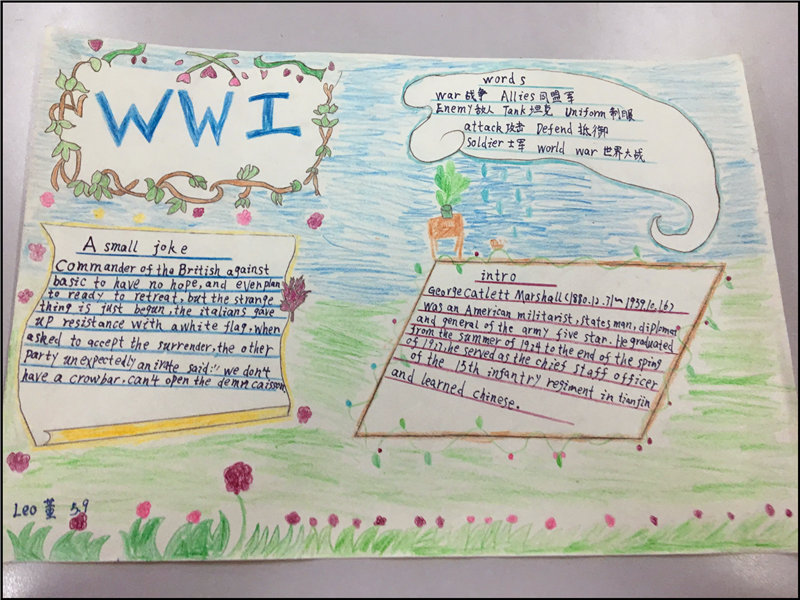 WWI
words
war 战争 Allies 同盟军
Enemy 敌人 Tank 坦克 Uniform 制服
attack 攻击 Defend 抵御
Soldier 士军 world war 世界大战
A small joke
Commander of the British against
basic to have no hope, and even plan
to ready to retreat, but the strange
thing is just begun, the italians gave
up resistance with a white flag. when
asked to accept the surrender, the other
party unexpectedly an irate said:" we don't
have a crowbar, can't open the demn caisson
intro
George Catlett Marshall (1880.12.31~1959.10.16)
was an American militarist, statesman, diplomat
and general of the army five star. He graduated
from the summer of 1924 to the end of the sping
of 1927, he served as the chief staff officer
of the 15th infantry regiment in tianjin
and learned chinese.
Leo 董 5.9